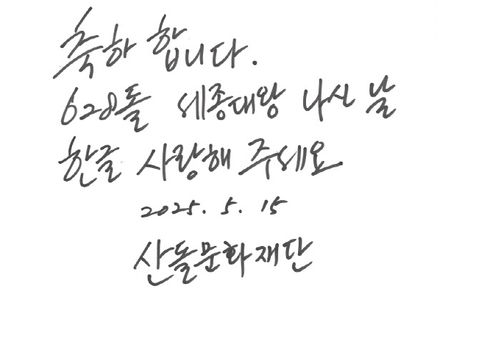 축하 합니다.
628돌 세종대왕 나신 날
한글 사랑해 주세요
2025. 5. 15
산돌문화재단